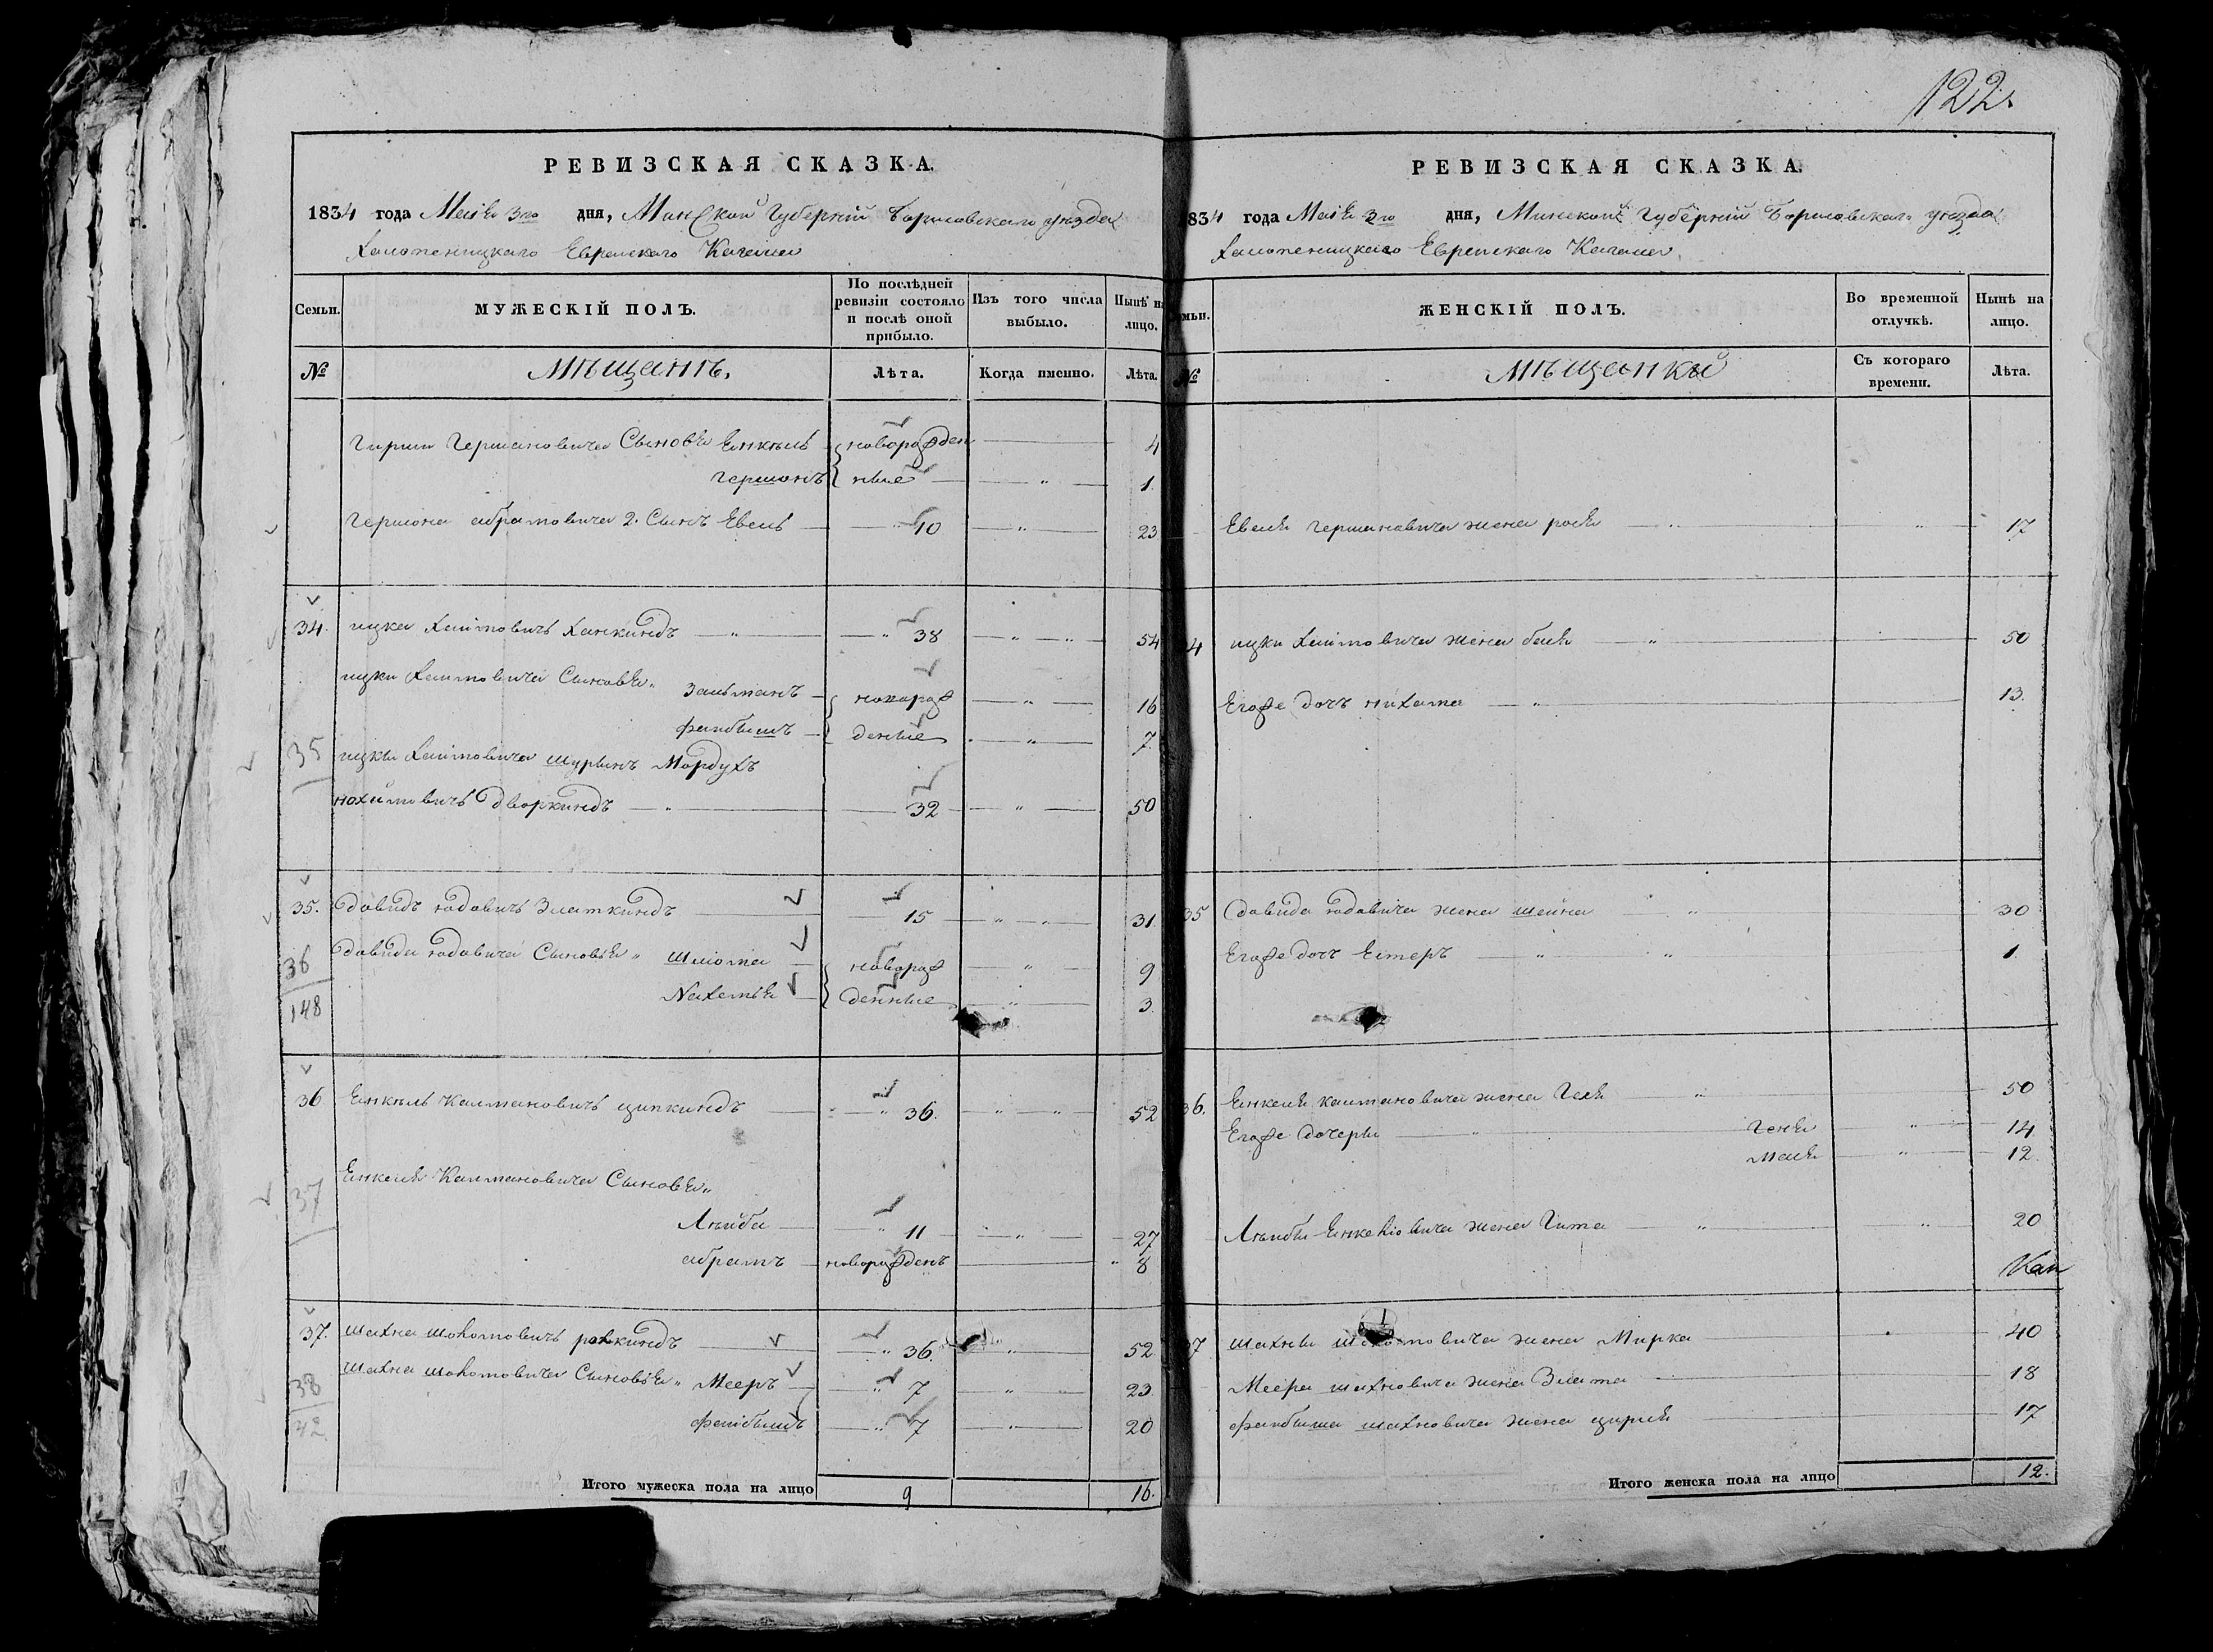 122.
РЕВИЗСКАЯ СКАЗКА.
1834 года Маія 3го дня, Минской Губерніи Борисовскаго уѣзда
Холопеницкаго Еврейскаго Кагала
Семьи.
МУЖЕСКІЙ ПОЛЪ.
По послѣдней ревизіи состояло и послѣ оной прибыло.
Изъ того числа выбыло.
Нынѣ на лицо.
№
Мѣщанъ.
Лѣта.
Когда именно.
Лѣта.
Гирши Гершановича Сыновья Енкель новорожден 4
Гершонъ ные " 1
Гершона абрамовича 2. Сынъ Евель 10 " 23
34. ицка Хаимовичъ Ханкиндъ " 38 " " 54
ицки Хаимовича Сыновья " Зальманъ новорож " 16
файбишъ денные " 7
35 ицки Хаимовича шуринъ Мордухъ
нохимовичъ Дворкиндъ " 32 " 50
35. Давидъ Іодовичъ Златкиндъ 15 " " 31
36 Давида Іодовича Сыновья " Шліома новорож " 9
148 Нахемья денные " 3
36 Енкель Калмановичъ ципкиндъ " 36. " " 52
Енкеля Калмановича Сыновья "
37
Лейба " 11 " 27
абрамъ новорожденъ " 8
37. шахна шоломовичъ рохкиндъ " 36. " 52
шахна шоломовича Сыновья " Мееръ " 7 " " 23
38
файбишъ " 7 " 20
42
Итого мужеска пола на лицо 9 16.
РЕВИЗСКАЯ СКАЗКА.
1834 года Маія 3го дня, Минской Губерніи Борисовскаго уѣзда
Холопеницкаго Еврейскаго Кагала
Семьи.
ЖЕНСКІЙ ПОЛЪ.
Во временной отлучкѣ.
Нынѣ на лицо.
№
Мѣщанки
Съ котораго времени.
Лѣта.
Евеля Гершановича жена рося " " 17
34 ицки Хаимовича жена бася " 50
Егоже дочъ нихама " 13.
35 Давида Іодовича жена шейна " 30
Егоже дочъ Естеръ " " 1.
36. Енкеля калмановича жена Геся " 50
Егоже дочери " Геня " 14
Мася " 12.
Лейбы Енкеліовича жена Гита " " 20
37 шахны шоломовича жена Мирка 40
Меера шахновича жена Злата 18
файбиша шахновича жена цирля 17
Итого женска пола на лицо 12.